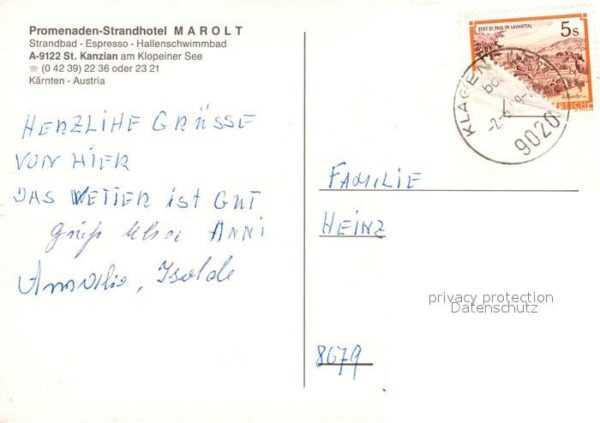 Promenaden-Strandhotel MAROLT
Strandbad - Espresso - Hallenschwimmbad
A-9122 St. Kanzian am Klopeiner See
☏ (0 42 39) 22 36 oder 23 21
Kärnten - Austria
HERZLIHE GRÜSSE
VON HIER
DAS WETTER iST GUT
Gruß ANNI
Amalie, Isolde
STIFT ST. PAUL IM LAVANTTAL
5s
KLAGEN
9020
FAMILIE
HEINZ
privacy protection
Datenschutz
8679